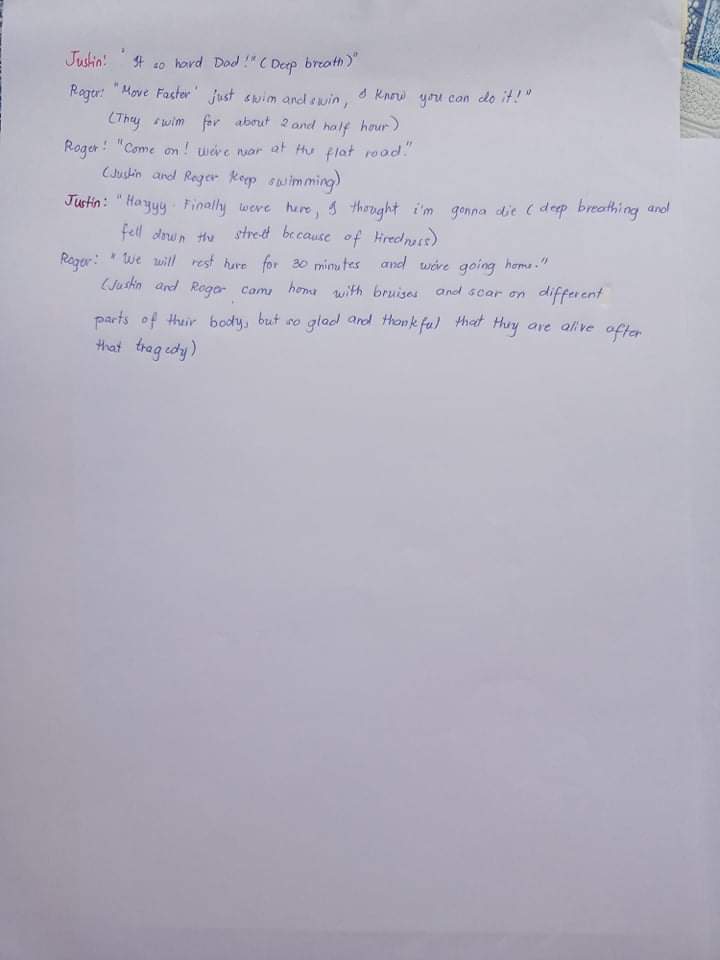 Justin: "It so hard Dad!" (Deep breath)"
Roger: "Move Faster' just swim and swin, I know you can do it!"
(They swim for about 2 and half hour)
Roger: "Come on! we're near at the flat road."
(Justin and Roger keep swimming)
Justin: "Hayyy. Finally we're here, I thought i'm gonna die (deep breathing and
fell down the street because of tiredness)
Roger: "We will rest here for 30 minutes and we're going home."
(Justin and Roger came home with bruises and scar on different
parts of their body, but so glad and thankful that they are alive after
that tragedy)